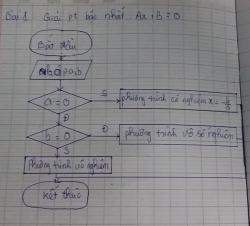 Bài 1 Giải pt bậc nhất Ax + B = 0
Bắt đầu
nhập a,b
a = 0
S
phương trình có nghiệm x = -b/a
Đ
b = 0
Đ
phương trình vô số nghiệm
S
Phương trình vô nghiệm
kết thúc